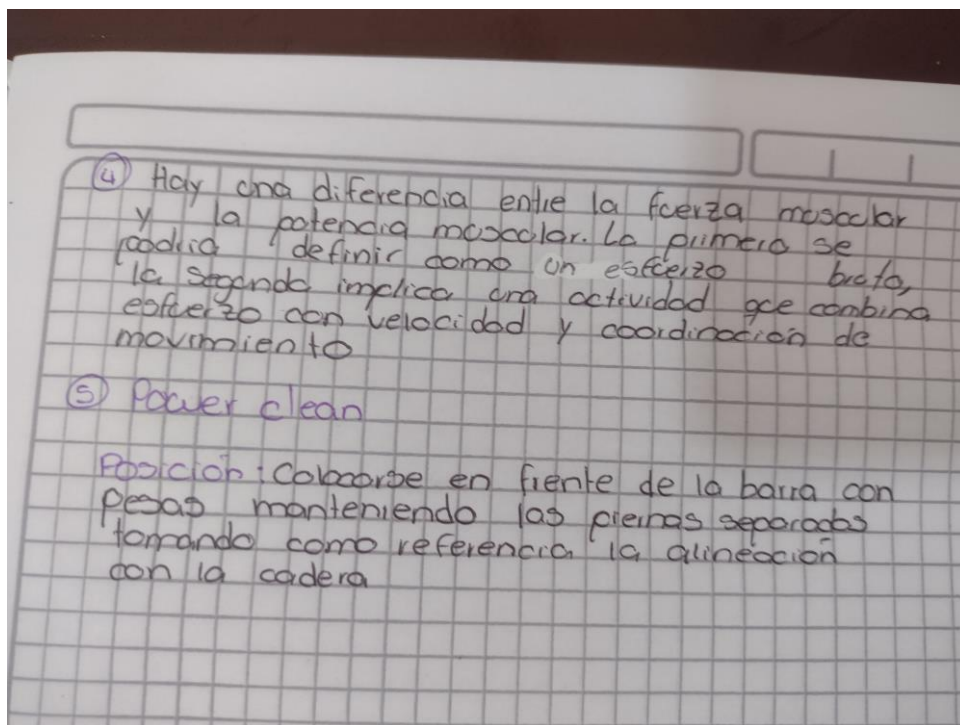 ④ Hay una diferencia entre la fuerza muscular
y la potencia muscular. La primera se
podria definir como un esfuerzo bruto,
la segunda implica una actividad que combina
esfuerzo con velocidad y coordinación de
movimiento
⑤ Power clean
Posición: Colocarse en frente de la barra con
pesas manteniendo las piernas separadas
tomando como referencia la alineación
con la cadera